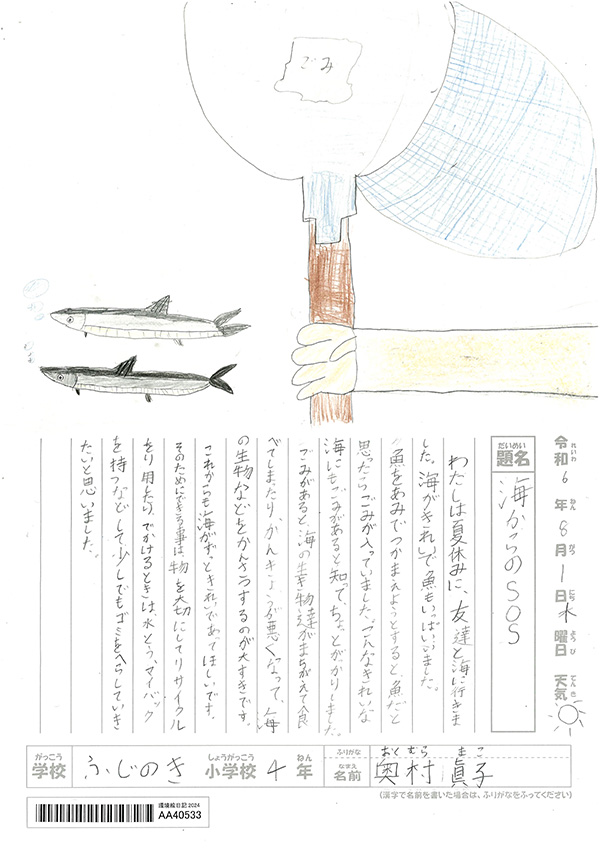 ごみ
令和6年8月1日木曜日 天気
れいわ ねん がつ にち ようび てんき
だいめい
題名
海からのSOS
わたしは夏休みに、友達と海に行きま
した。海がきれいで魚もいっぱいいました。
魚をあみでつかまえようとすると、魚だと
思ったらごみが入っていました。こんなきれいな
海にもごみがあると知って、ちょっとがっかりしました。
ごみがあると海の生き物達がまちがえて食
べてしまったり、かんきょうが悪くなって、海
の生物などをかんさつするのが大すきです。
これからも海がずっときれいであってほしいです。
そのためにできる事は、物を大切にしてリサイクル
をり用したり、でかけるときは、水とう、マイバック
を持つなどして少しでもゴミをへらしていき
たいと思いました。
がっこう
学校
ふじのき
しょうがっこう
小学校
4
ねん
年
ふりがな
なまえ
名前
おくむら まこ
奥村 眞子
(漢字で名前を書いた場合は、ふりがなをふってください)
環境絵日記2024
AA40533